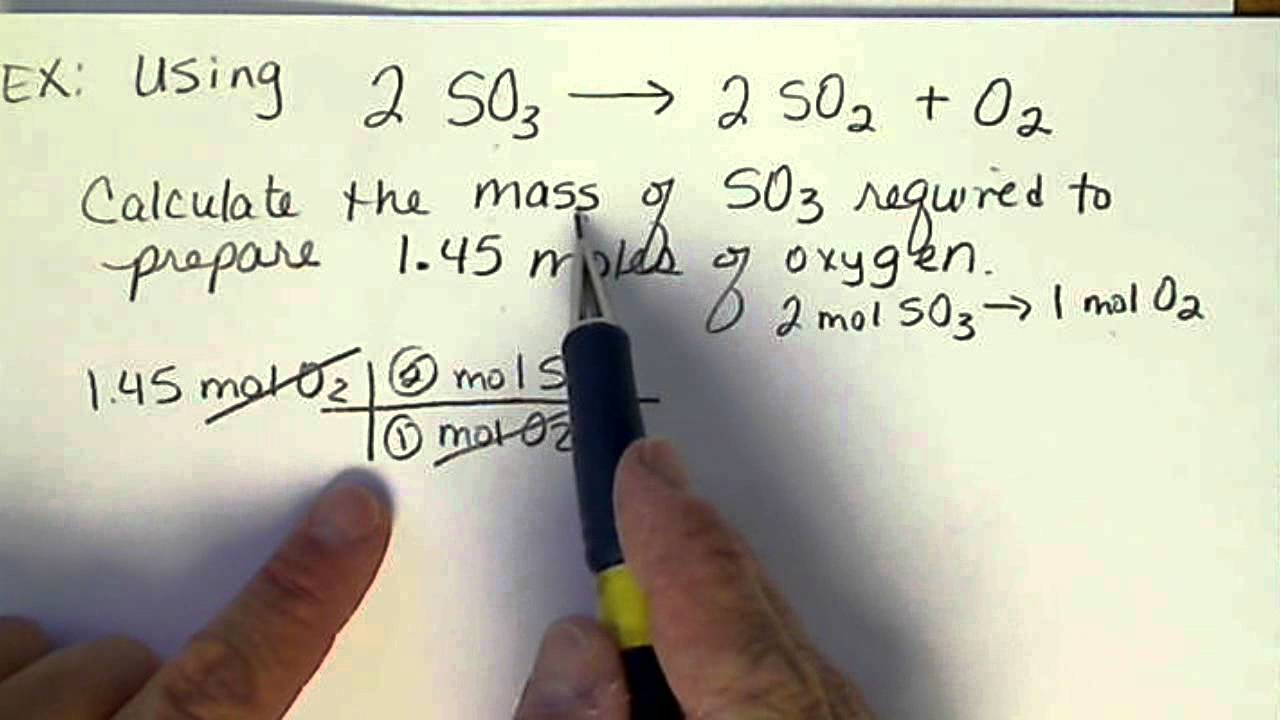 EX: Using 2 SO₃ → 2 SO₂ + O₂
Calculate the mass of SO₃ required to
prepare 1.45 moles of oxygen.
2 mol SO₃ → 1 mol O₂
1.45 mol O₂ | 2 mol S
1 mol O₂